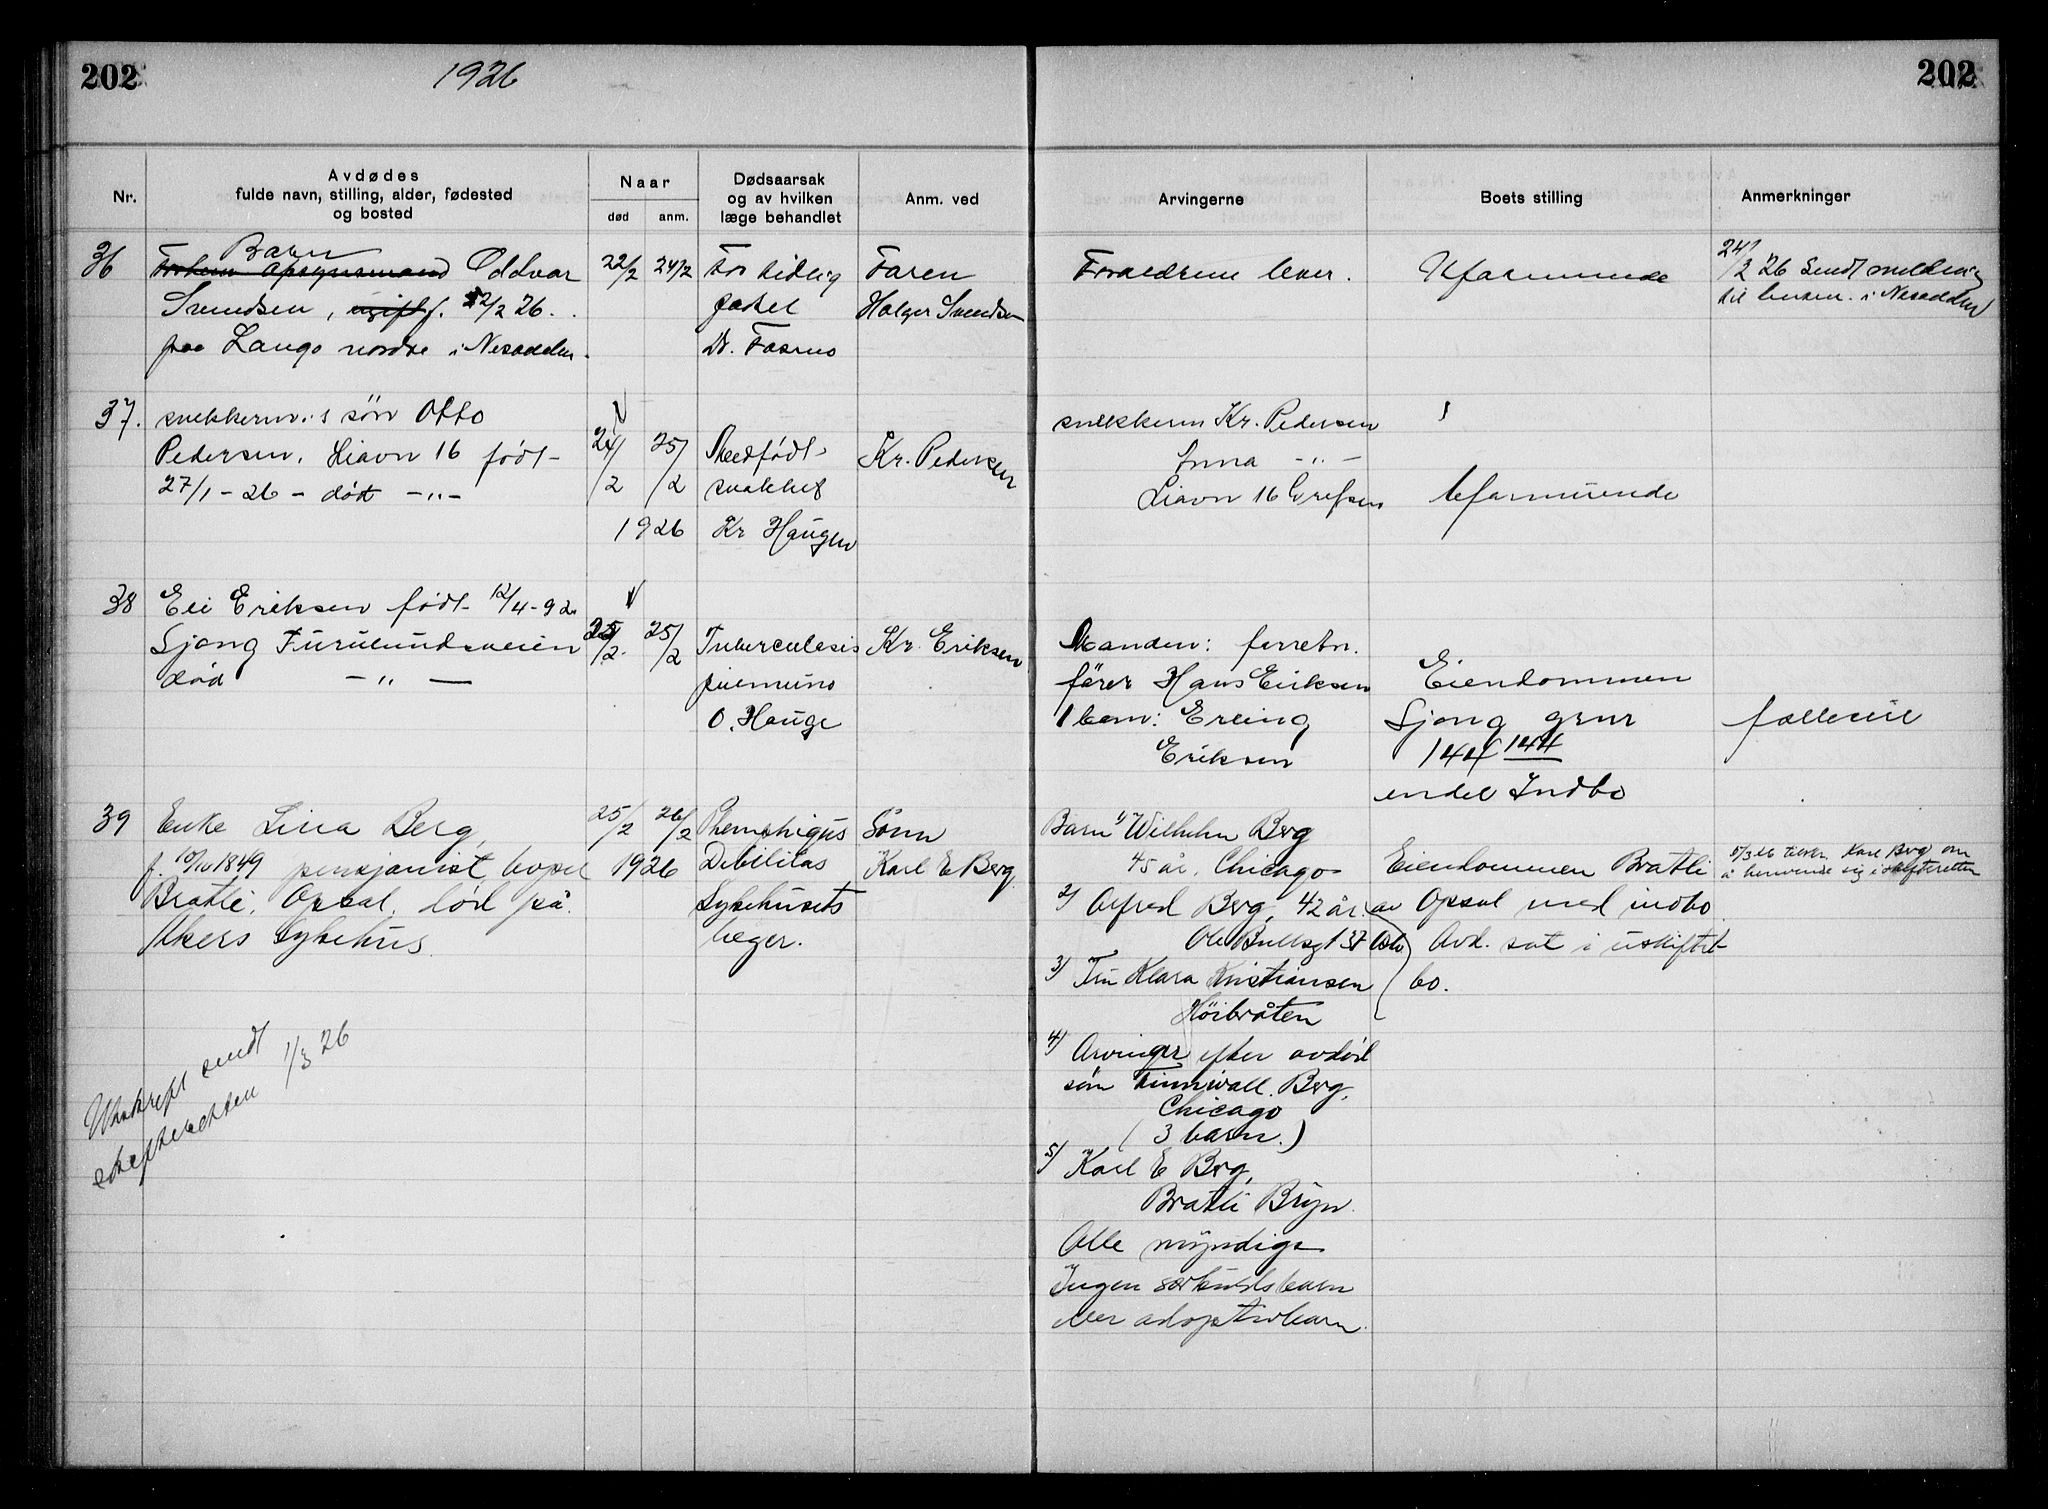 202
1926
202
Nr.
Avdødes
fulde navn, stilling, alder, fødested
og bosted
Naar
død
anm.
Dødsaarsak
og av hvilken
læge behandlet
Anm. ved
Arvingerne
Boets stilling
Anmerkninger
36
Barn
Forhen opsynsmand Oddvar
Svendsen, ugift f. 22/2 26.
paa Langø nordre i Nesodden.
22/2
24/2
For tidlig
født
Dr.
Faren
Holger Svendsen
Forældrene lever.
Uformuende
24/2 26 sendt melding
til lensm. i Nesodden
37.
snekkerm.s søn Otto
Pedersen, Liavn 16 født
27/1 - 26 - død -"-
24/2
25/2
1926
Medfødt
svakhet
Kr Haugen
Kr. Pedersen
snekkerm Kr. Pedersen
Anna -"-
Liavn 16 Grefsen
Uformuende
38
Eli Eriksen født 12/4-92
Ljong Furulundsveien
død -"-
25/2
25/2
Tuberculosis
pulmuno
O. Hauge
Kr. Eriksen
Manden: forretn.
fører Hans Eriksen
1 barn: Erling
Eriksen
Eiendommen
Ljong grnr
144 144
endel Indbo
fælleseie
39
Enke Lina Berg,
f. 10/10 1849 pensjonist, bopel
Bratli, Opsal, død på
Akers Sykehus.
25/2
26/2
1926
Phemphigus
Debilitas
Sykehusets
læger.
Sønn
Karl E Berg.
Barn 1) Wilhelm Berg
45 år, Chicago
2) Alfred Berg, 42 år.
Ole Bullsgt 37 Oslo
3) Fru Klara Kristiansen
Höibråten
4) Arvinger efter avdød
søn Finnwall. Berg,
Chicago
(3 barn.)
5) Karl E Berg,
Bratli Bryn.
Alle myndige
Ingen særkuldsbarn
eller adoptivbarn.
Eiendommen Bratli
av Opsal med indbo
Avd. sat i uskiftet
bo.
5/3 26 tilskr. Karl Berg om
å henvende sig i skifteretten
Utskrift sendt
skifteretten 1/3 26